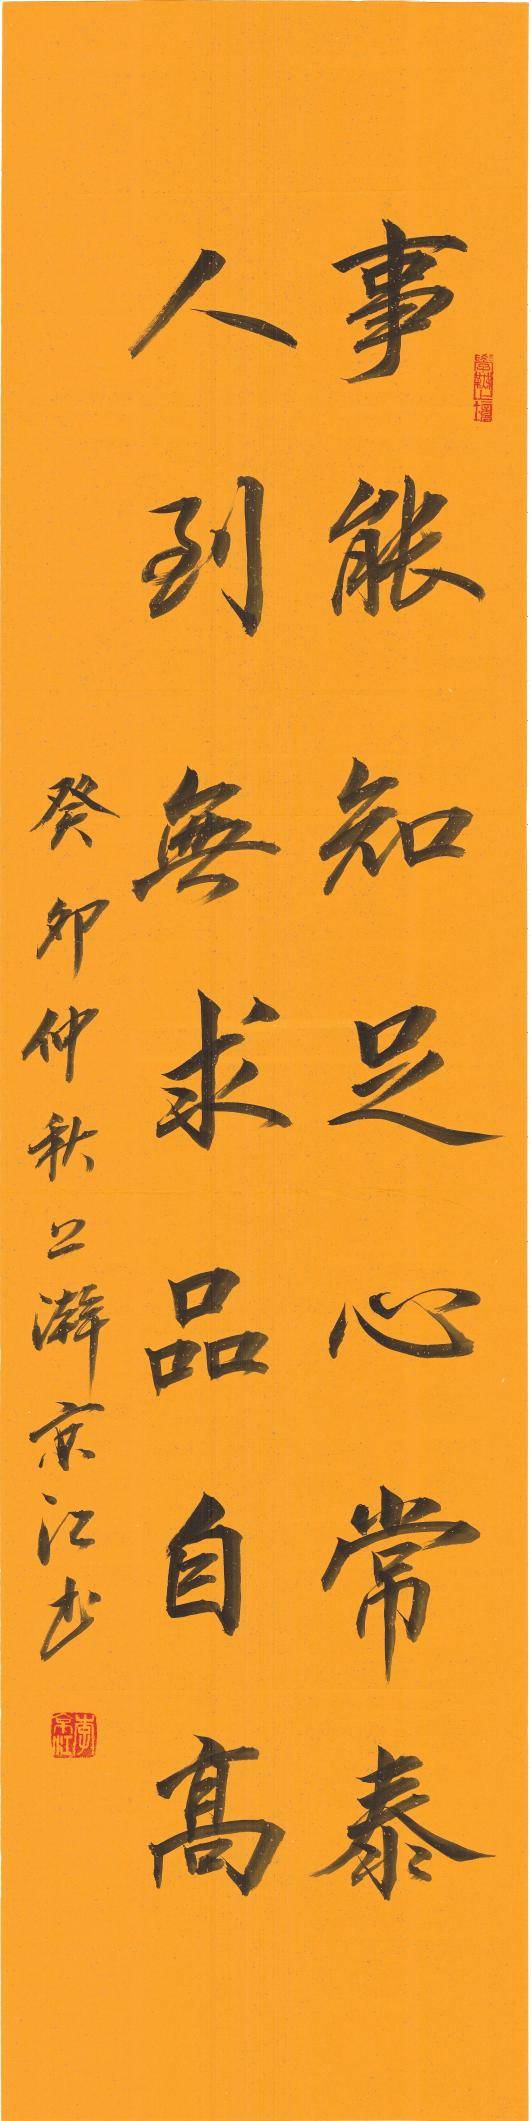 事能知足心常泰
人到無求品自高
癸卯仲秋上澣京江书